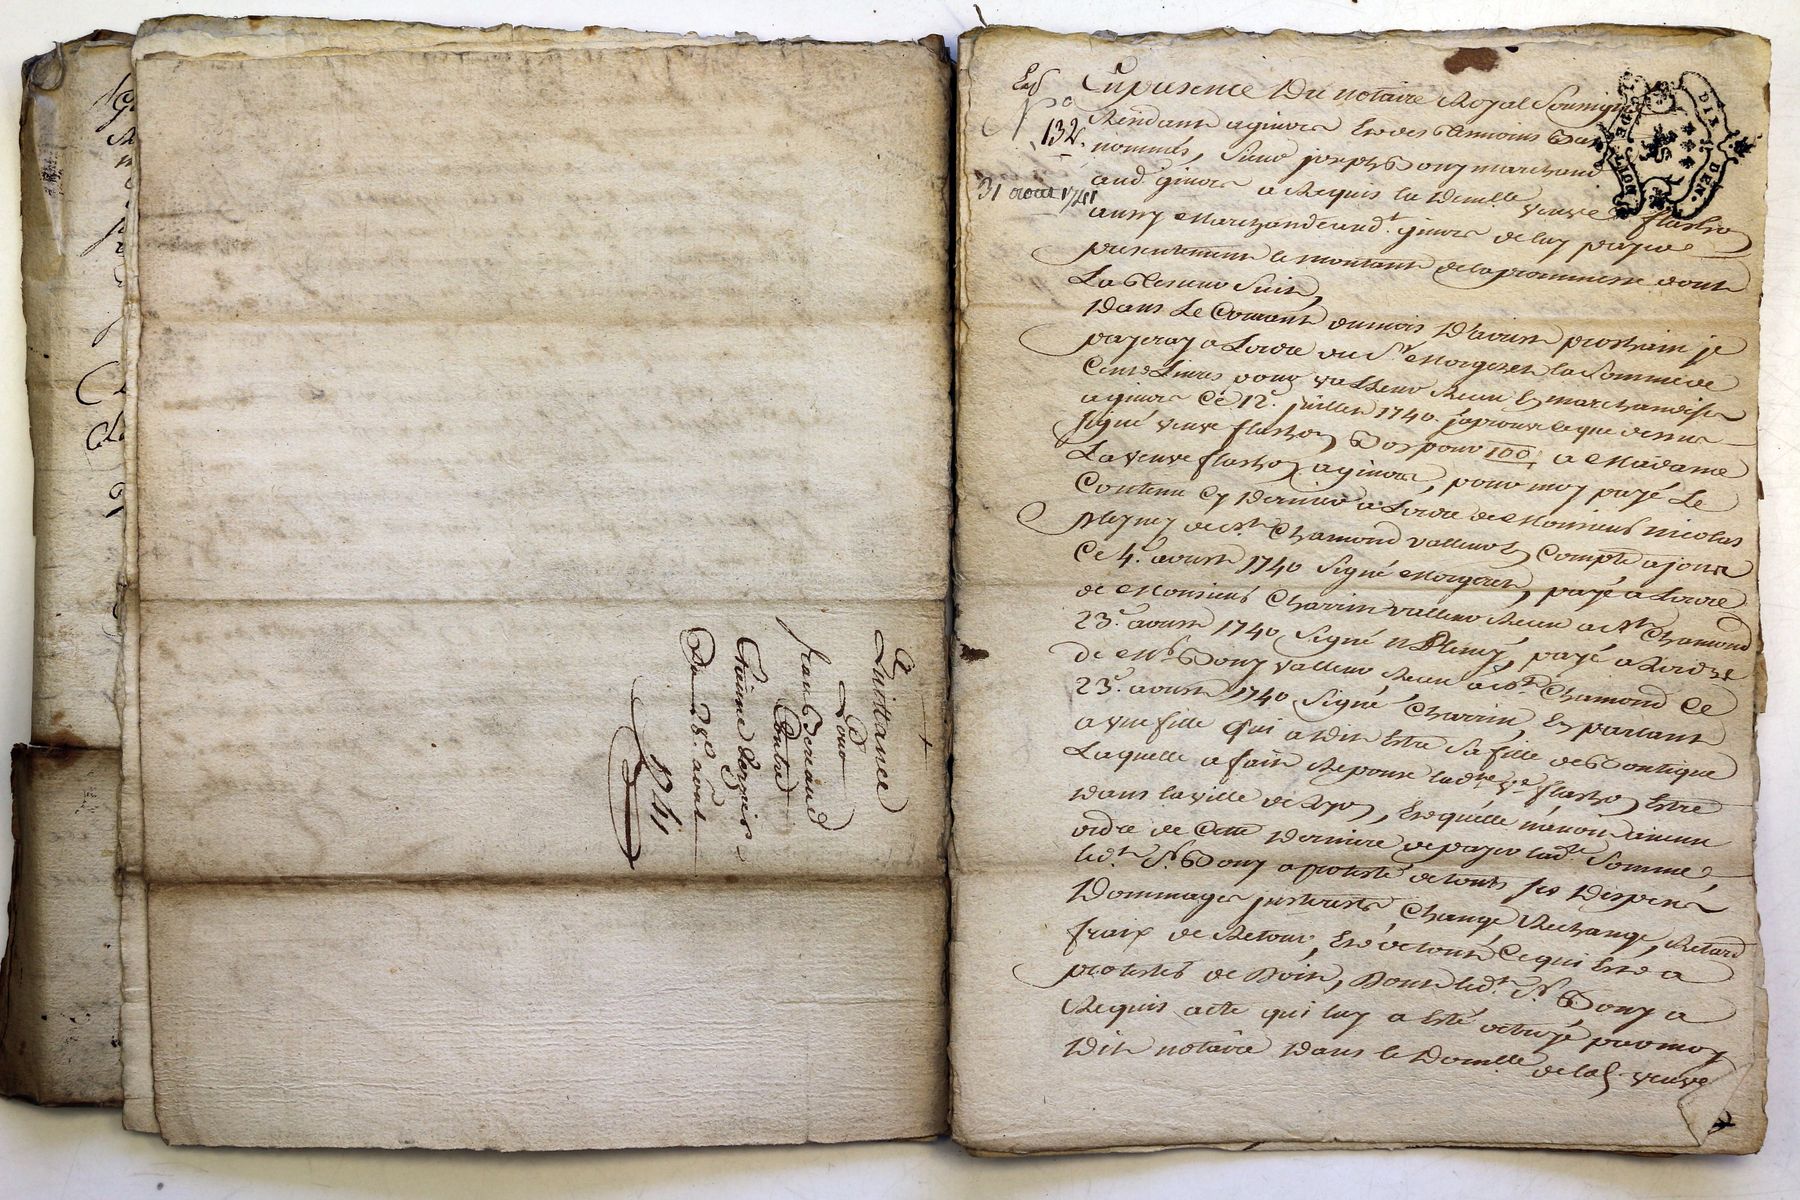 Quittance
Pour
Jean Bernaud
Contre
Etienne
Du 28e aout
1741
Exp
No
132.
31 aout 1741
En presence Du notaire Royal Soussigné
Residant a givors Et des temoins bas
nommés, Sieur joseph Bony marchand
aud. givors a Requis la Demlle veuve flachon
aussy Marchande aud.t givors de luy payer
presentement le montant de la promesse dont
La Teneur Suit,
Dans Le Courant du mois D'aoust prochain je
payeray a Lordre du Sr Morgeret la Somme de
Cent Livres pour valleur Receue En marchandises
a givors Ce 12e. juillet 1740. japrouve le que dessus
signé veuve flachon, Bon pour 100, a Madame
La veuve flachon a givors, pour moy payé Le
Contenu Cy Dernier a Lordre de Monsieur nicolas
de St Chamond valleur En Compte a jour
Ce 4e. aoust 1740 Signé Morgeret, payé a Lordre
de Monsieur Charrin valleur Receue a St Chamond
23e. aoust 1740, Signé payé a Lordre
de Mr. Bony valleur Receue a St. Chamond Ce
23e. aoust 1740 Signé Charrin, En parlant
a une fille qui a dit Estre Sa fille de Boutique
Laquelle a fait Reponse lad.te ve flachon Estre
Dans la ville de Lyon, Et quelle n'en avoir aucun
ordre de Cette Derniere de payer lad.te Somme,
led.t Sr. Bony a protesté de touts ses Depens
Dommages jnterests, Change, Rechange, Retard
fraix de Retour, Et de tout Ce qui Est a
protester de Droit, Dont led.t Sr. Bony a
Requis acte qui luy a Eté octroyé par moy
Dit notaire Dans le Domlle de la d. veuve